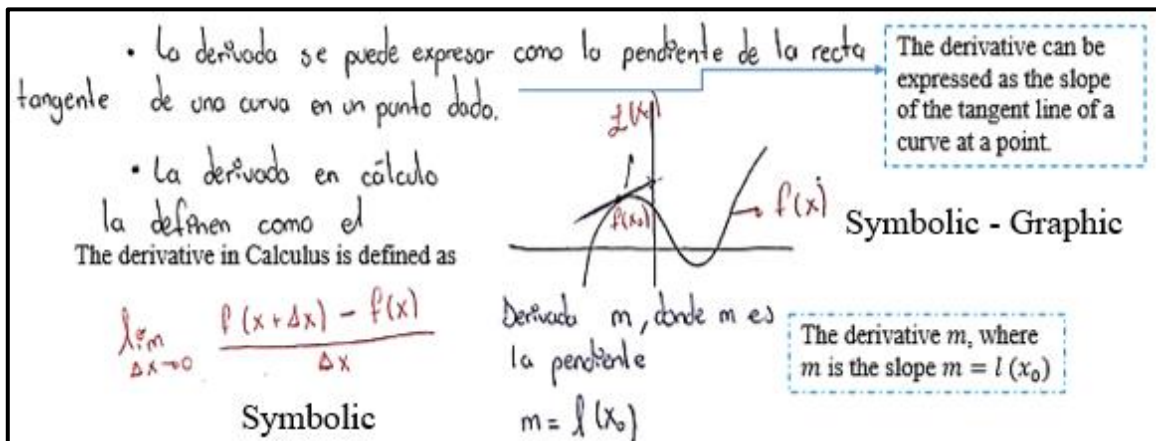 • La derivada se puede expresar como la pendiente de la recta
tangente de una curva en un punto dado.
The derivative can be
expressed as the slope
of the tangent line of a
curve at a point.
• La derivada en cálculo
la definen como el
The derivative in Calculus is defined as
lim Δx→0 f(x+Δx) - f(x) / Δx
Symbolic
l
f(x₀)
f(x)
Symbolic - Graphic
Derivada m, donde m es
la pendiente
m = l(x₀)
The derivative m, where
m is the slope m = l (x₀)